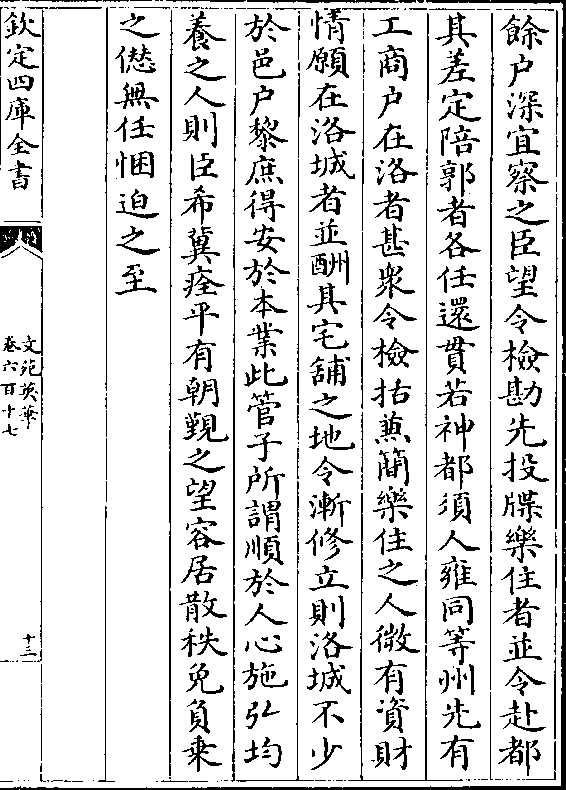 餘户深宜察之臣望令檢勘先投牒樂住者並令赴都
其差定陪郭者各任還貫若神都須人雍同等州先有
工商户在洛者甚衆令檢括兼簡樂住之人微有資財
情願在洛城者並酬其宅舖之地令漸修立則洛城不少
於邑户黎庶得安於本業此管子所謂順於人心施弘均
養之人則臣希冀痊平有朝覲之望容居散秩免負乗
之僽無任悃迫之至
欽定四庫全書
文苑英華
卷六百十七
十三